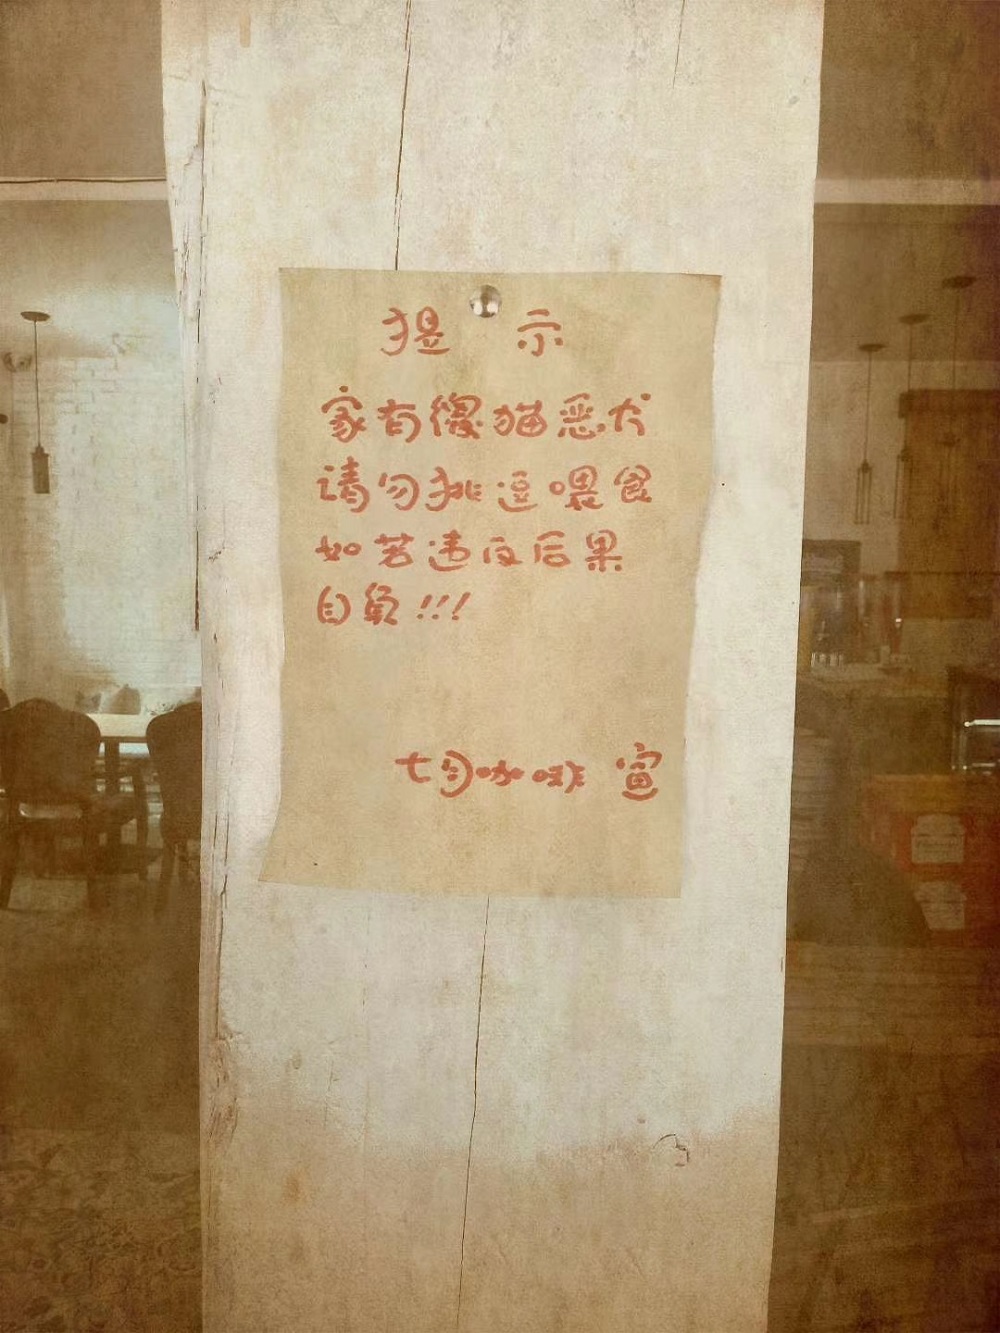 提 示
家有傻猫恶犬
请勿挑逗喂食
如若违反后果
自负!!!
七旬咖啡 宣